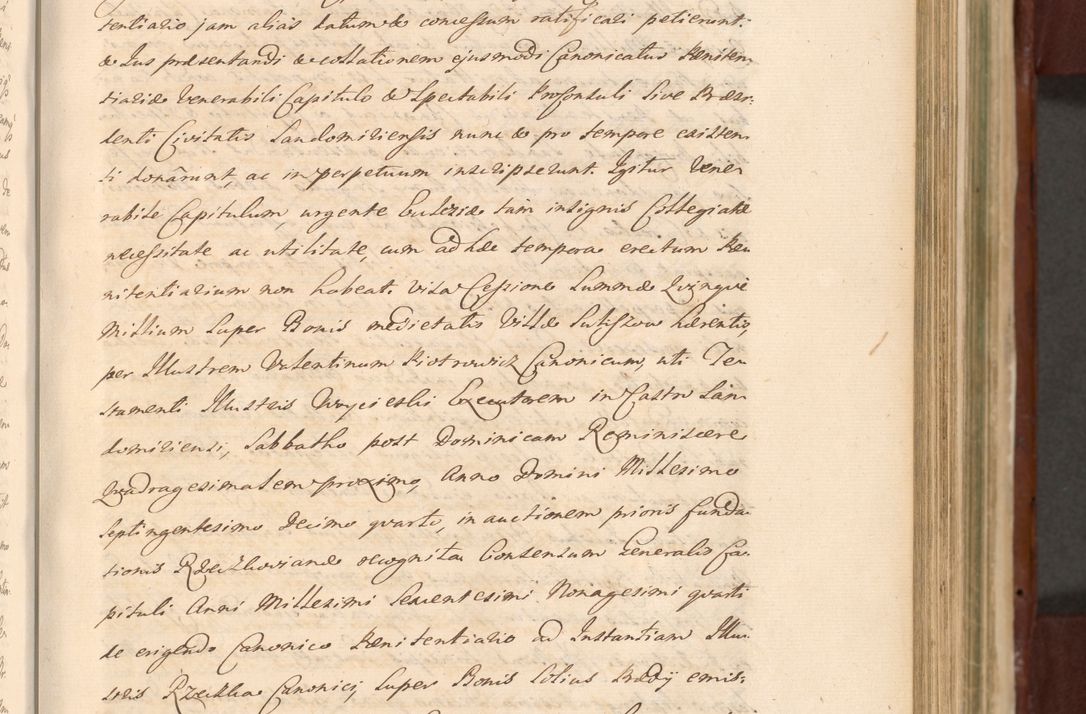 tentiario jam alias datum & concessum ratificari petierunt.
& Jus præsentandi & collationem ejusmodi Canonicatus Pæniten
tiariæ Venerabili Capitulo & Spectabili Proconsuli sive Præsi
denti Civitatis Sandomiriensis nunc & pro tempore existen
ti donârunt, ac in perpetuum inscripserunt. Igitur Vene
rabile Capitulum, urgente Ecclesiæ tam insignis Collegiatæ
necessitate ac utilitate, cum ad hæc tempora erectum Pæ
nitentiarium non habeat. Visa Cessione Summæ Qvinqve
Millium super Bonis medietatis Villæ hærentis,
per Illustrem Valentinum Piotrowicz Canonicum, uti Te
stamenti Illustris Woycieski Executorem in Castro San
domiriensi, Sabbatho post Dominicam Reminiscere
Qvadragesimalem proximo, Anno Domini Millesimo
Septingentesimo Decimo qvarto, in auctionem prioris funda
tionis Rzeczkovianæ recognita Consensum Generalis Ca
pituli Anni Millesimi Sexcentesimi Nonagesimi qvarti
de erigendo Canonico Pænitentiario ad Instantiam Illu
stris Rzeczka Canonici, super Bonis totius Prædij emis